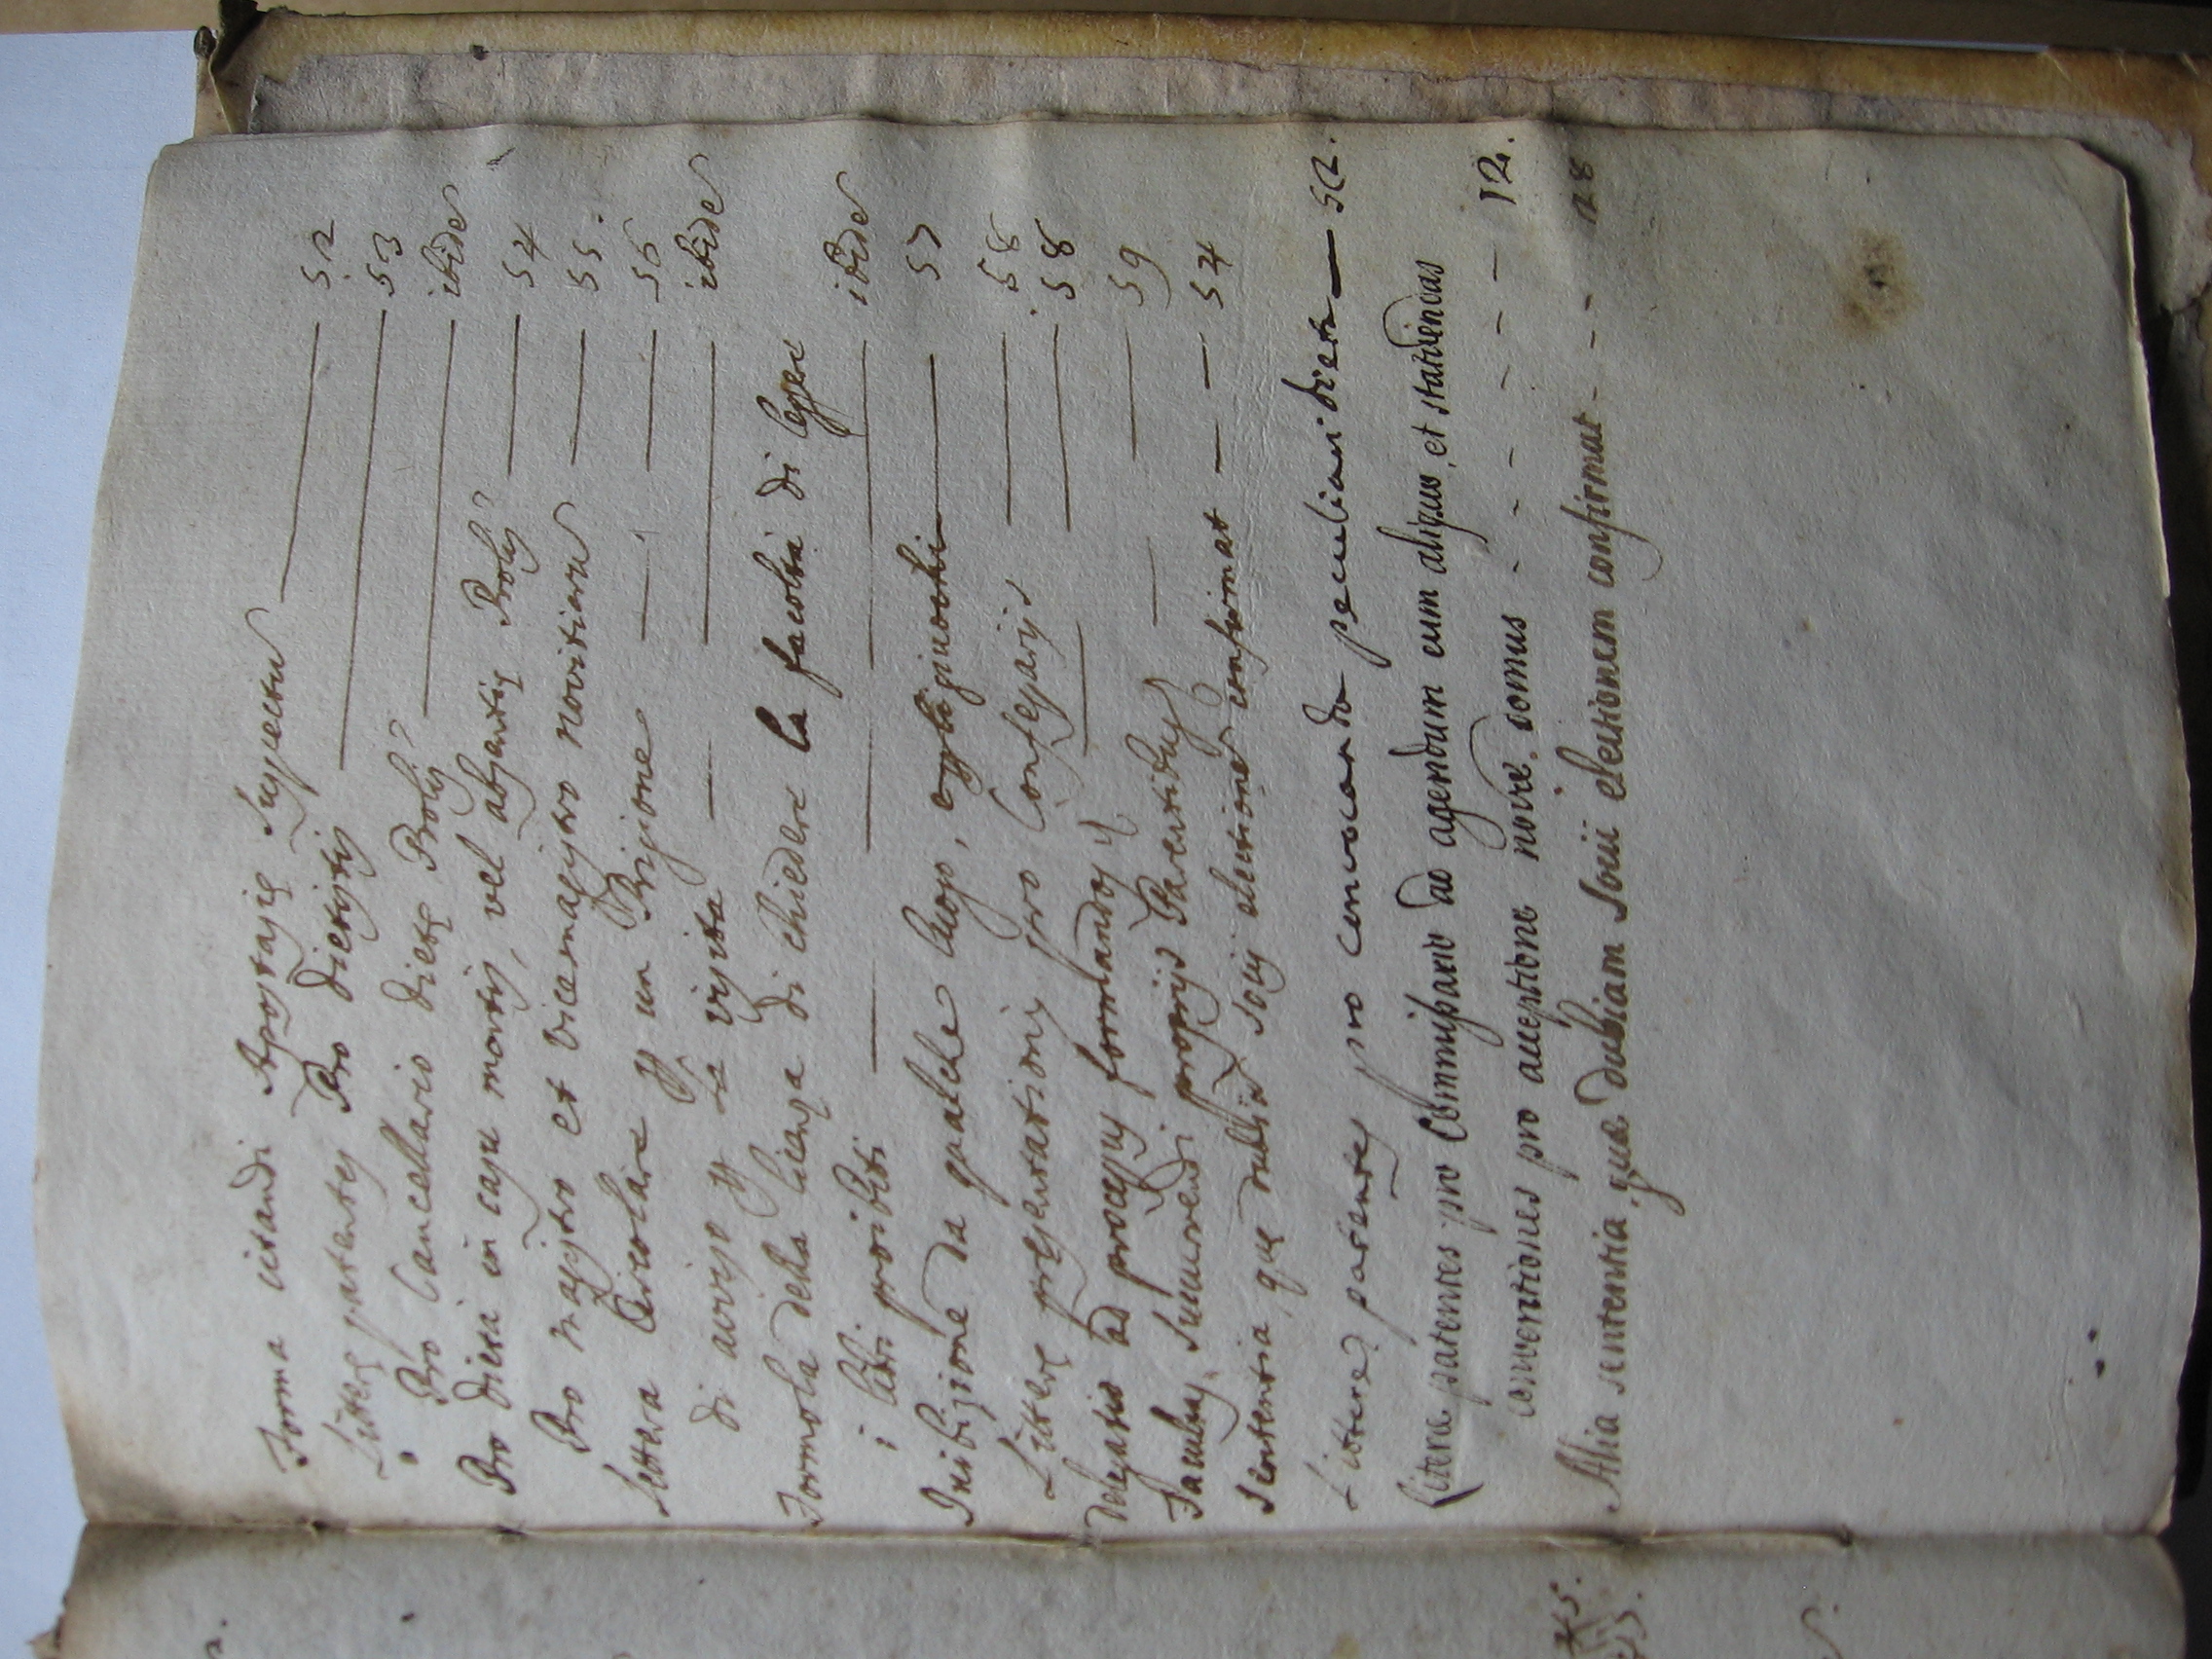 Forma citandi Apostasię suspectu — 52
Litterę patentes Pro Dietistis — 53
Pro Cancellario Dietę Prolis — ibide
Pro Dieta in casu mortis, vel absentię Prolis — 54
Pro magistro et vicemagistro novitioru — 55.
Lettera Circolare p una Prigione — 56
di aviso p la visita — ibide
Formola della licenza di chiedere la facoltà di leggere
i libri proibiti — ibide
Inibizione da qualche luogo, — 57
Litterę pręsentationis pro Confessarijs — 58
Delegatio ad processus formandos — 58
Facultas sumendi proprijs Parentibus — 59
Sententia, quę dubiã socij electionẽ confirmat — 54
Litterę patentes pro convocanda peculiari dieta — 52.
Literæ patentes pro Commissario ad agendum cum aliquo, et statuendas
conventiones pro acceptione novæ domus - - - - - - 12.
Alia sententia quæ dubiam socii electionem confirmat - - - 28
45.